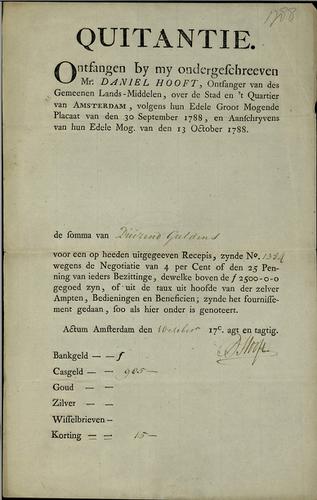 1788
QUITANTIE.
Ontfangen by my ondergeschreeven
Mr. DANIEL HOOFT, Ontfanger van des
Gemeenen Lands-Middelen, over de Stad en 't Quartier
van AMSTERDAM, volgens hun Edele Groot Mogende
Placaat van den 30 September 1788, en Aanschryvens
van hun Edele Mog. van den 13 October 1788.
de somma van Duizend Guldens
voor een op heeden uitgegeeven Recepis, zynde No.
wegens de Negotiatie van 4 per Cent of den 25 Pen-
ning van ieders Bezittinge, dewelke boven de ƒ 2500-0-0
gegoed zyn, of uit de taux uit hoofde van der zelver
Ampten, Bedieningen en Beneficien; zynde het fournisse-
ment gedaan, soo als hier onder is genoteert.
Actum Amsterdam den October 17c. agt en tagtig.
D. Hooft
Bankgeld — — ƒ
Casgeld — — 985 —
Goud — —
Zilver — —
Wisselbrieven —
Korting — — 15 —